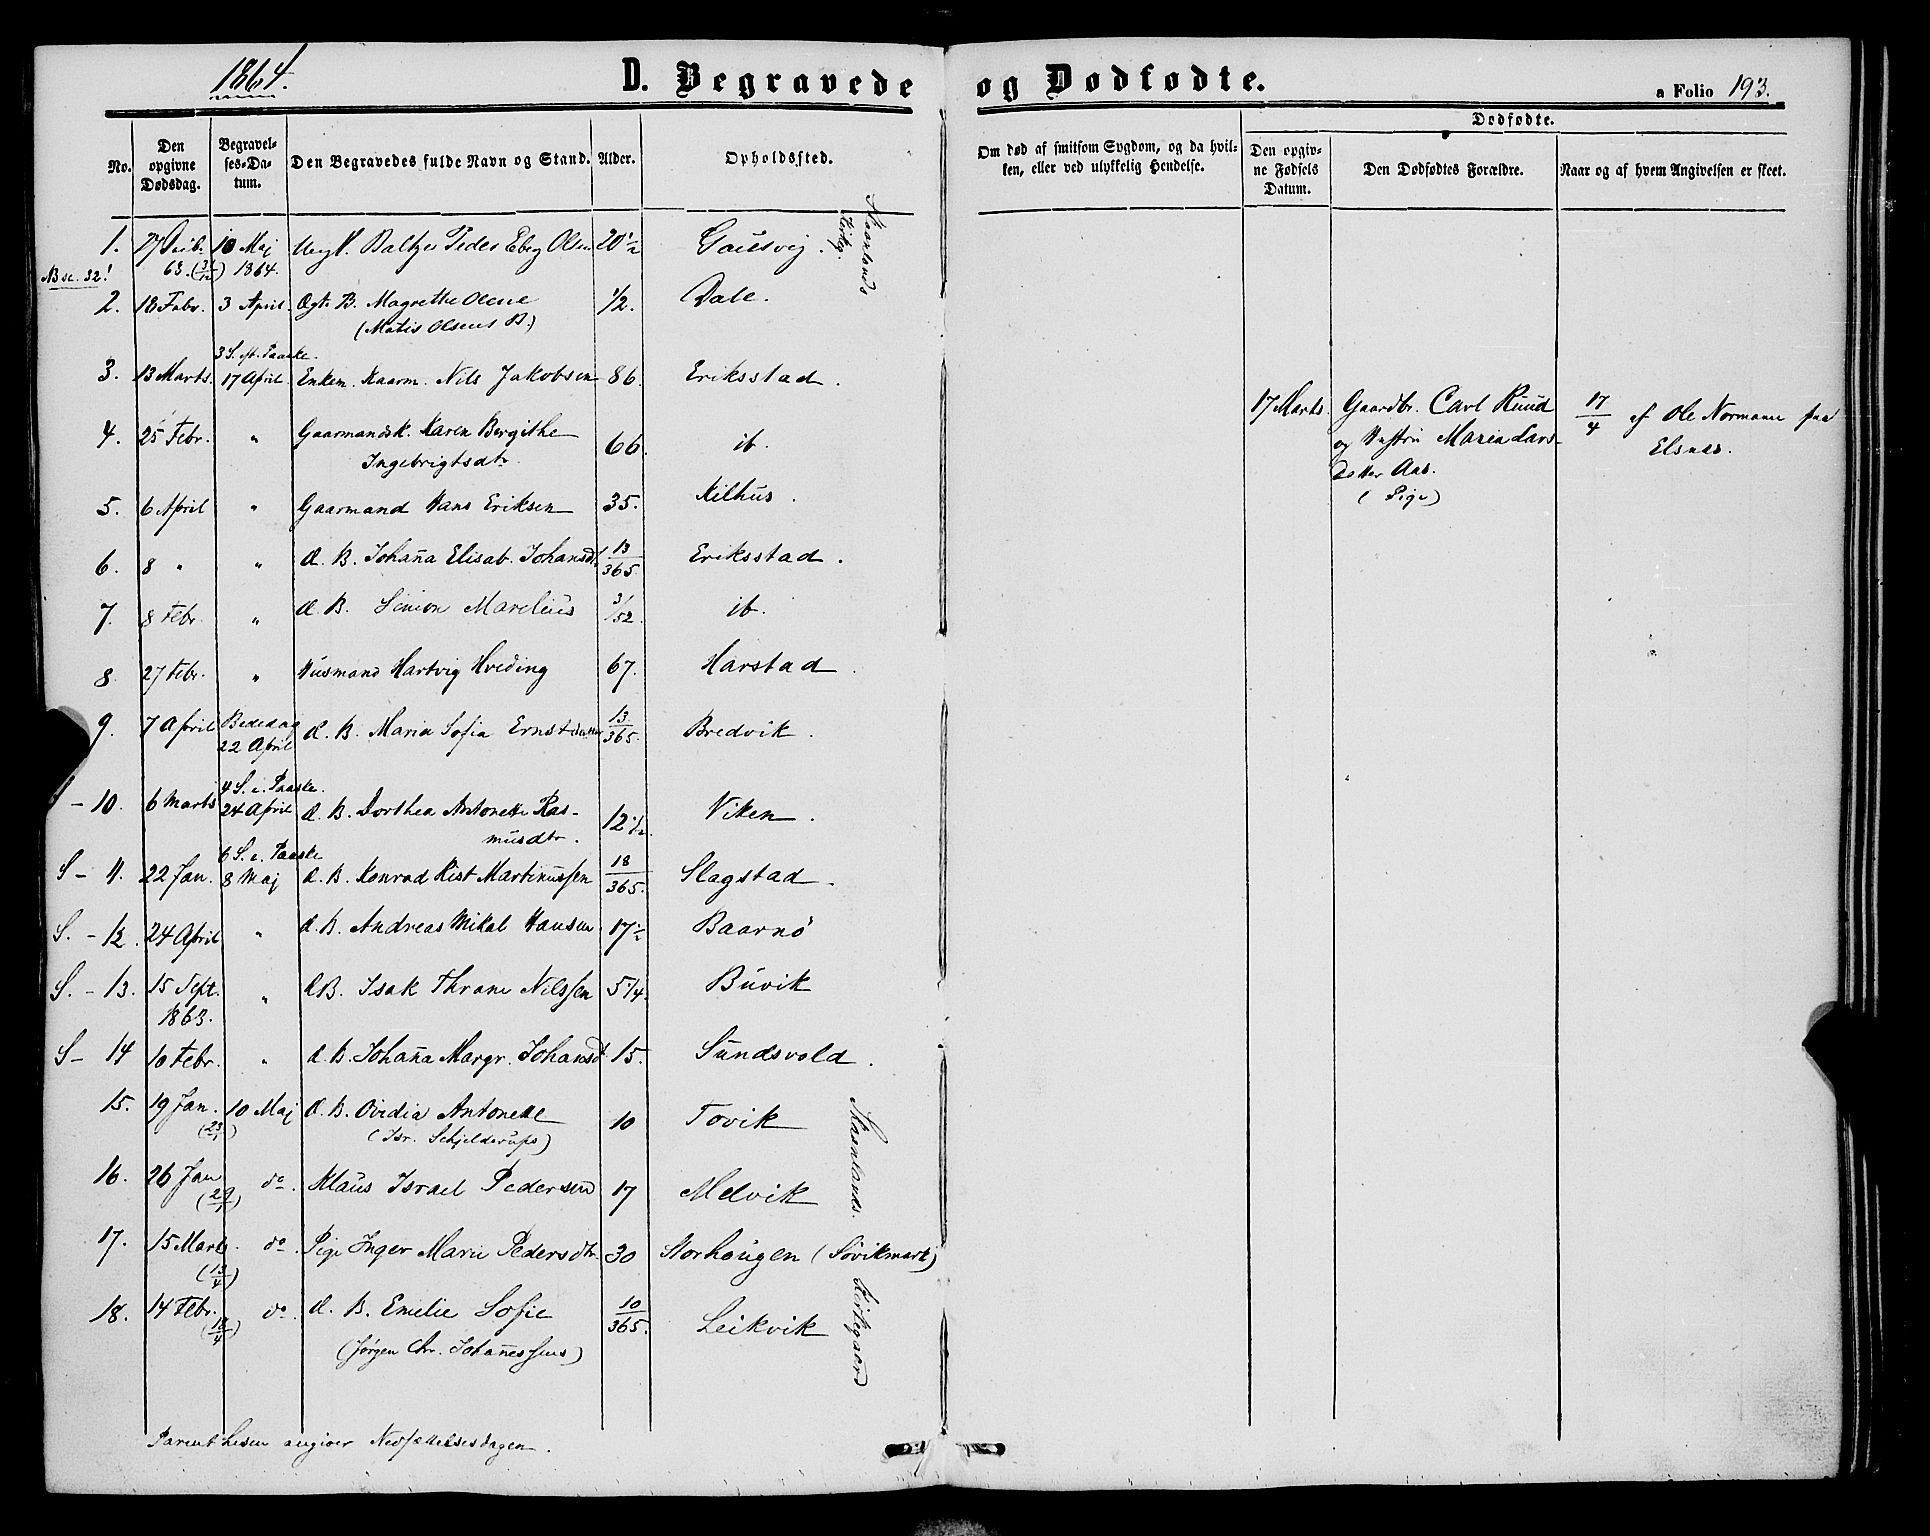 1864.
D. Begravede og Dødfødte.
a Folio 193.
No.
Den opgivne Dødsdag.
Begravelses-Datum.
Den Begravedes fulde Navn og Stand.
Alder.
Opholdssted.
Om død af smitsom Sygdom, og da hvilken, eller ved ulykkelig Hendelse.
Dødfødte.
Den opgivne Fødsels Datum.
Den Dødfødtes Forældre.
Naar og af hvem Angivelsen er skeet.
1. 10 Maj Baltzer Peder Ebeg Olsen 20 1/2 Gausvig.
63. 1864.
2. 18 Febr. 3 April Ægte B. Magrethe Olene 1/2. Dale.
(Matis Olsens B.)
3 S. eft. Paaske.
3. 13 Marts. 17 April. Enkem. Kaarm. Nils Jakobsen 86. Eriksstad.
4. 25 Febr. " Gaarmandsk. Karen Bergithe 66. ib.
Ingebrigtsdtr.
5. 6 April " Gaarmand Hans Eriksen 35. Kilhus.
6. 8 " " Æ. B. Johanna Elisab. Johansdt. 13/365. Eriksstad.
7. 8 Febr. " Æ B. Simon Marelius 3/52. ib.
8. 27 Febr. " Husmand Hartvig Hveding 67. Harstad
9. 7 April Bededag Æ. B. Maria Sofia Ernstdatter 13/365. Bredvik.
22 April
4 S. e. Paaske.
10. 6 Marts 24 April Æ. B. Dorthea Antonette Ras- 12 1/2. Viken.
musdtr.
6 S. e. Paaske
S - 11. 22 Jan. 8 Maj Æ. B. Konrad Kist Martinussen 18/365. Slagstad.
S. - 12. 24 April " Æ. B. Andreas Mikal Hansen 17 1/2 Baarnø
S. - 13. 15 Sept. " Æ B. Isak Thrane Nilssen Buvik
1863.
S - 14 10 Febr. " Æ. B. Johanna Margr. Johansdt 15. Sundsvold.
15. 19 Jan. 10 Maj Æ. B. Ovidia Antonette 10 Tovik
(Isr. Schjelderups)
16. 26 Jan do. Klaus Israel Pedersen 17 Melvik
17. 15 Marts. do. Pige Inger Marie Pedersdtr. 30 Storhaugen (Søvikmark)
(13/4)
18. 14 Febr. do. Æ. B. Emelie Sofie 10/365. Leikvik
(Jørgen Chr. Johannessens)
Kirkegaard
17 Marts. Gaardbr. Carl Ruud 17/4 af Ole Normann paa
og Hustru Maria Lars- Elsnes.
Datter Aas.
(Pige)
Parenthesen angiver Nedsættelsesdagen.